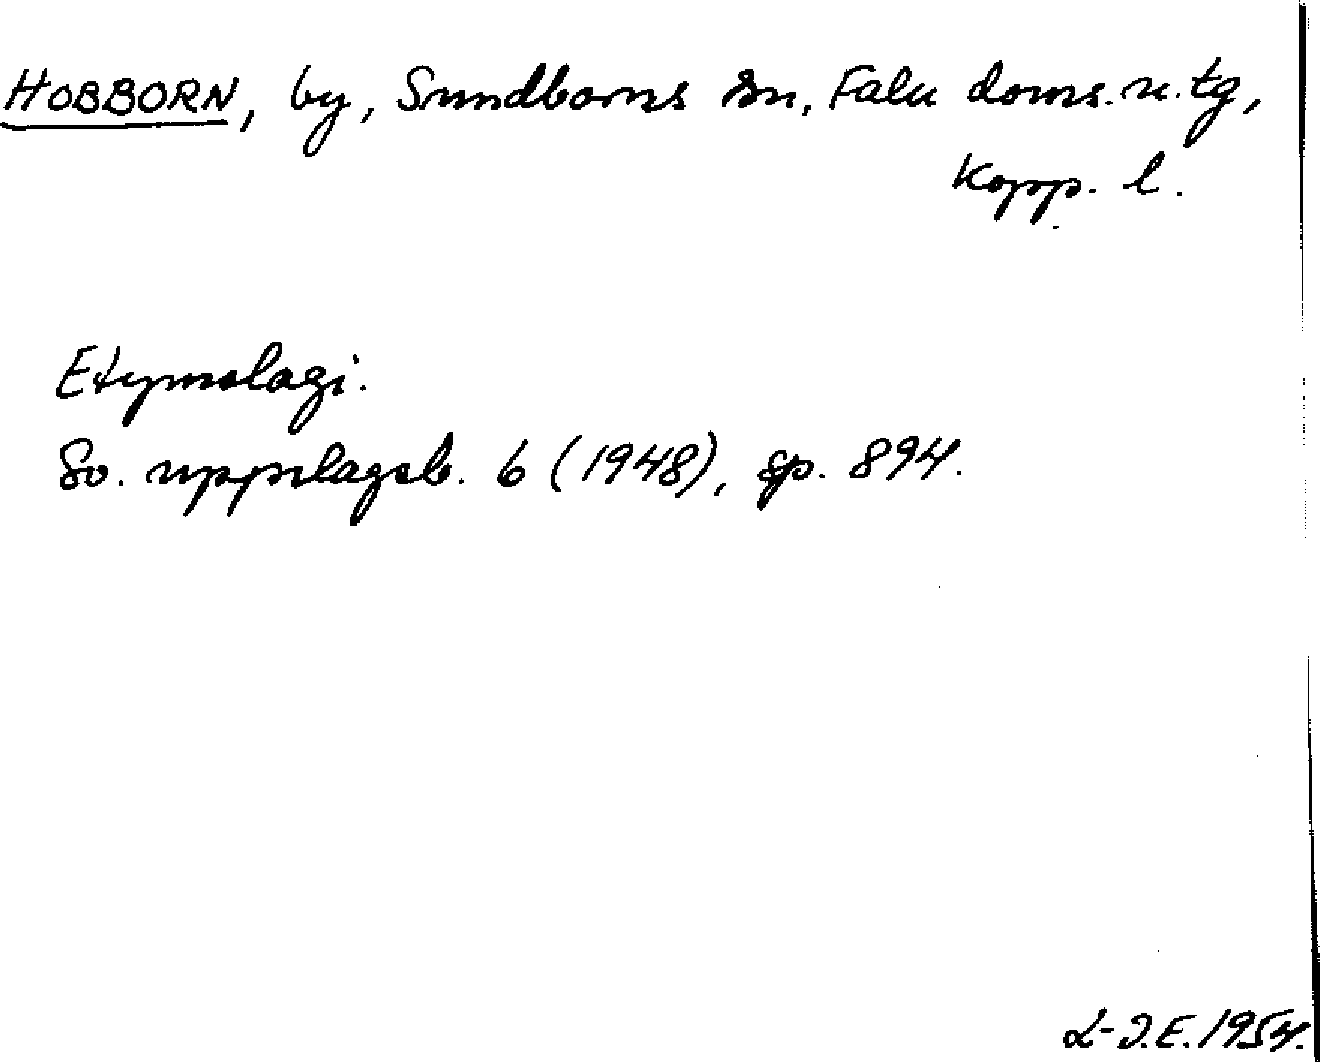 HOBBORN, by, Sundborns sn, Falu doms. n. tg,
Kopp. l.
Etymologi.
Sv. uppslagsb. 6 (1948), sp. 894.
L-I.E. 1954.